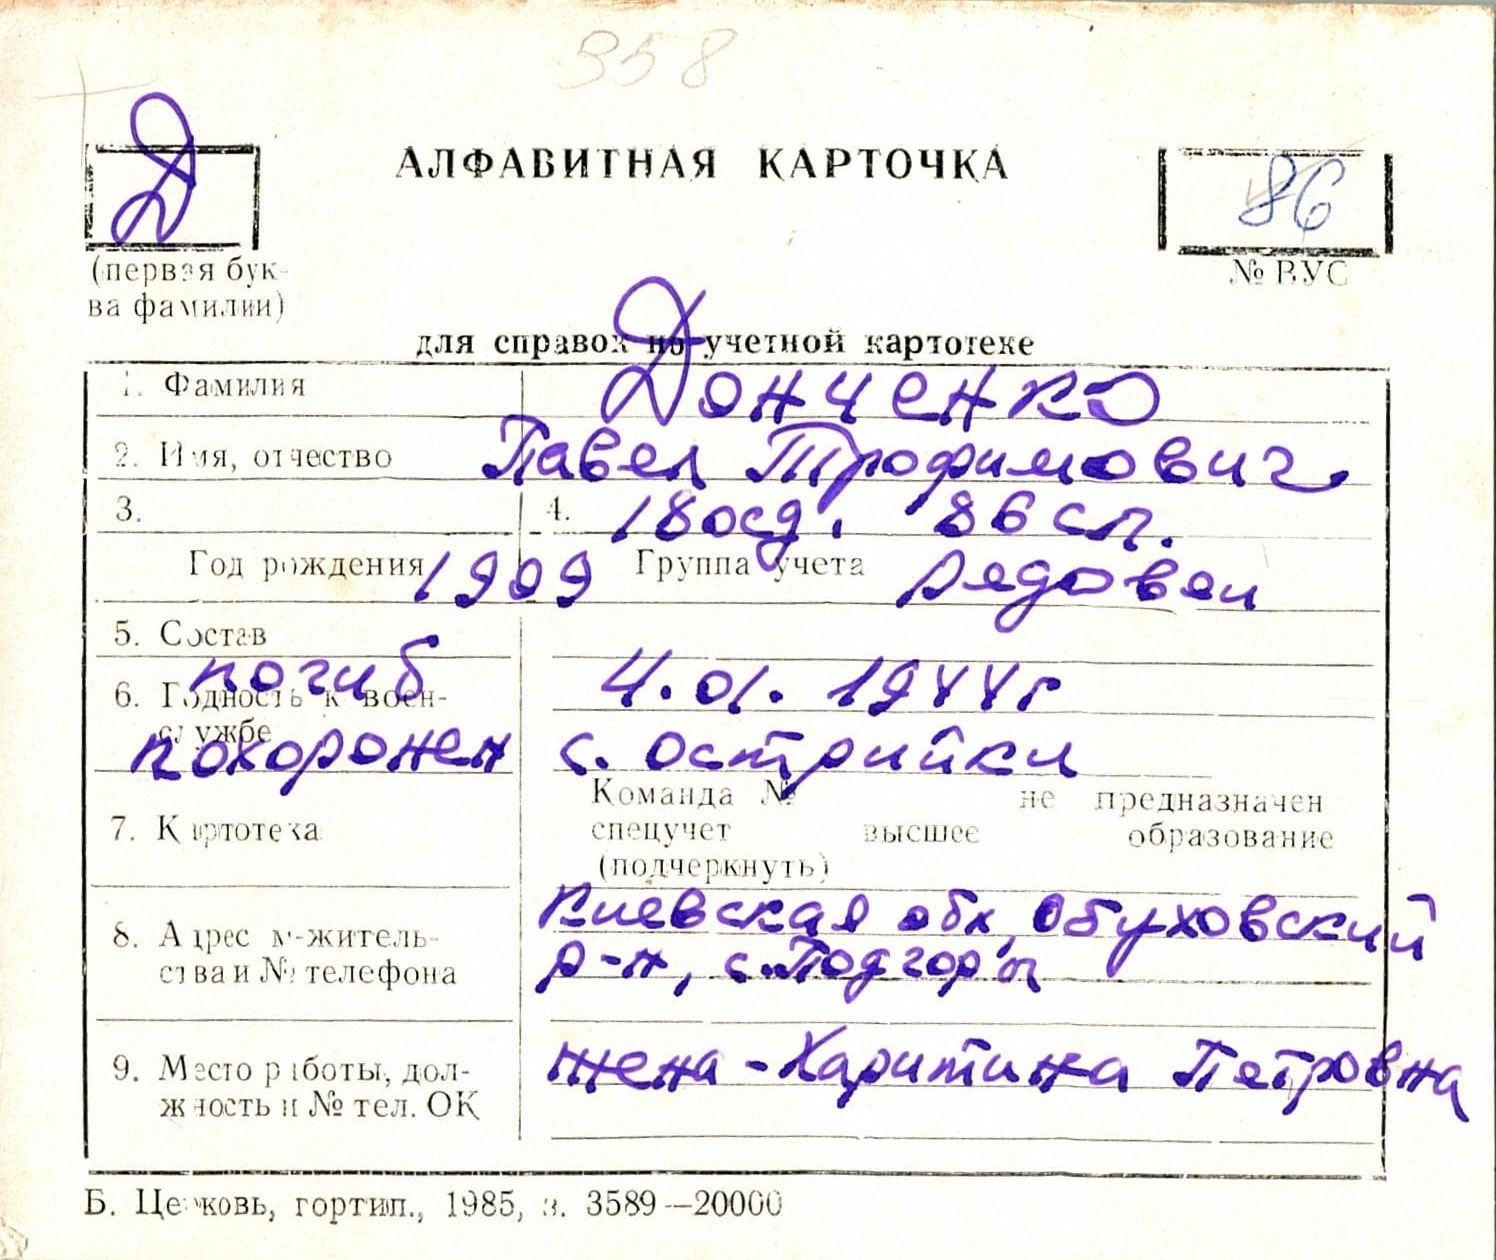 358
Д
АЛФАВИТНАЯ КАРТОЧКА
86
(первая бук-
ва фамилии)
№ ВУС
для справок по учетной картотеке
1. Фамилия Донченко
2. Имя, отчество Павел Трофимович
3. 4. 180сд. 86 сп.
Год рождения 1909 Группа учета Рядовой
5. Состав
погиб 4.01.1944г
6. Годность к воен-
службе
похоронен с. Острийки
Команда № не предназначен
7. Картотека спецучет высшее образование
(подчеркнуть)
Киевская обл, Обуховский
8. Адрес м-житель-
ства и № телефона р-н, с. Подгорцы
9. Место работы, дол-
жность и № тел. ОК жена - Харитина Петровна
Б. Церковь, гортип., 1985, з. 3589—20000